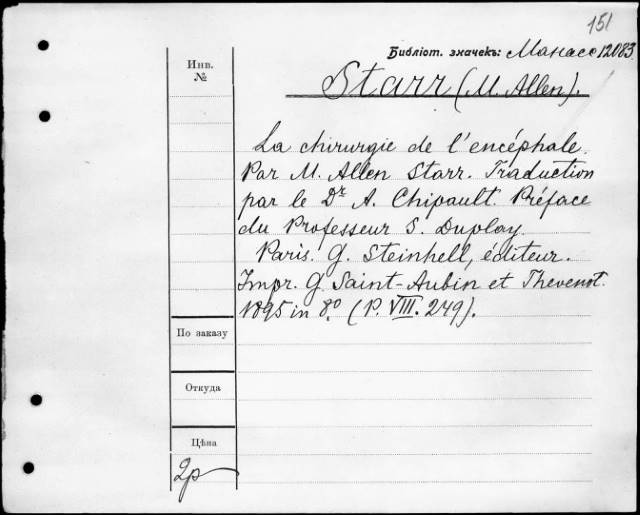 151
Библіот. значекъ: Манасс 12083
Инв.
№
Starr (M. Allen).
La chirurgie de l'encéphale.
Par M. Allen Starr. Traduction
par le Dr A. Chipault. Préface
du Professeur S. Duplay.
Paris. G. Steinheil, éditeur.
Impr. G. Saint-Aubin et Thevenot.
1895 in 8.º (P. VIII. 249).
По заказу
Откуда
Цѣна
2р